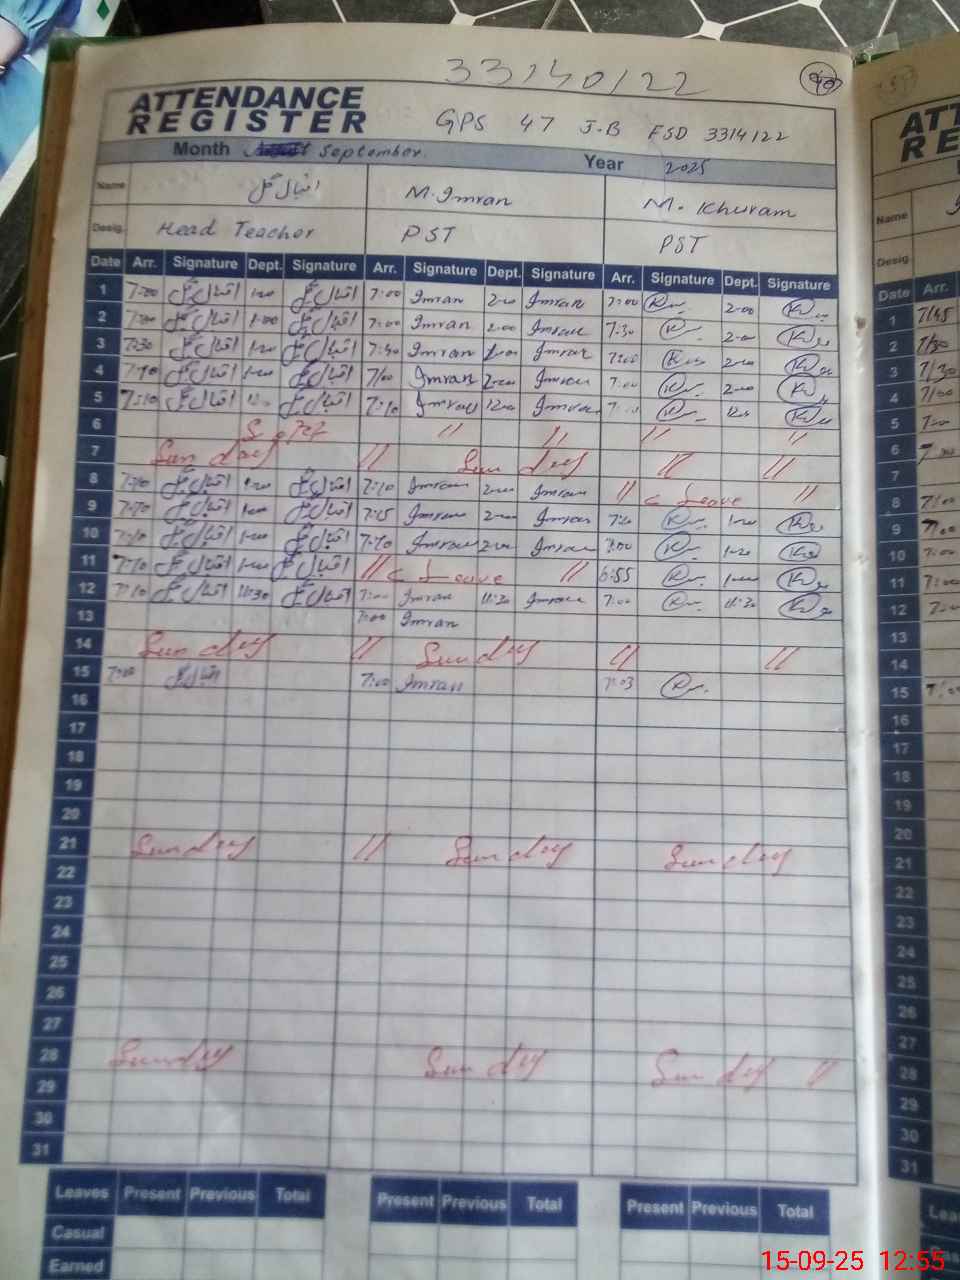 33140122
40
ATTENDANCE
REGISTER
GPS 47 J.B FSD 3314122
Month September Year 2025
Name اقبال گل M. Imran M. Khuram
Desig. Head Teacher PST PST
Date Arr. Signature Dept. Signature Arr. Signature Dept. Signature Arr. Signature Dept. Signature
1 7:00 اقبال گل 1:00 اقبال گل 7:00 Imran 2:00 Imran 7:00 2:00
2 7:00 اقبال گل 1:00 اقبال گل 7:00 Imran 2:00 Imran 7:30 2:00
3 7:30 اقبال گل 1:00 اقبال گل 7:30 Imran Imran 7:00 2:00
4 7:10 اقبال گل 1:00 اقبال گل 7:00 Imran 2:00 Imran 7:00 2:00
5 7:10 اقبال گل 12:00 اقبال گل 7:10 Imran 12:00 Imran 12:00
6 // // // //
7 Sunday // Sunday // //
8 7:10 اقبال گل 1:00 اقبال گل 7:10 Imran 2:00 Imran // C Leave //
9 7:10 اقبال گل 1:00 اقبال گل 7:15 Imran 2:00 Imran 1:00
10 7:10 اقبال گل 1:00 اقبال گل 7:10 Imran 2:00 Imran 7:00 1:00
11 7:10 اقبال گل 1:00 اقبال گل // C Leave // 6:55 1:00
12 7:10 اقبال گل 11:30 اقبال گل 7:00 Imran 11:30 Imran 7:00 11:30
13 7:00 Imran
14 Sunday // Sunday // //
15 7:00 اقبال گل 7:00 Imran 7:03
16
17
18
19
20
21 Sunday // Sunday Sunday
22
23
24
25
26
27
28 Sunday Sunday Sunday //
29
30
31
Leaves Present Previous Total Present Previous Total Present Previous Total
Casual
Earned
ATT
RE
Name
Desig.
Date Arr.
1 7:45
2 7:30
3 7:30
4 7:00
5 7:00
6 7:00
7
8 7:00
9 7:00
10 7:00
11 7:00
12 7:00
13
14
15
16
17
18
19
20
21
22
23
24
25
26
27
28
29
30
31
15-09-25 12:55